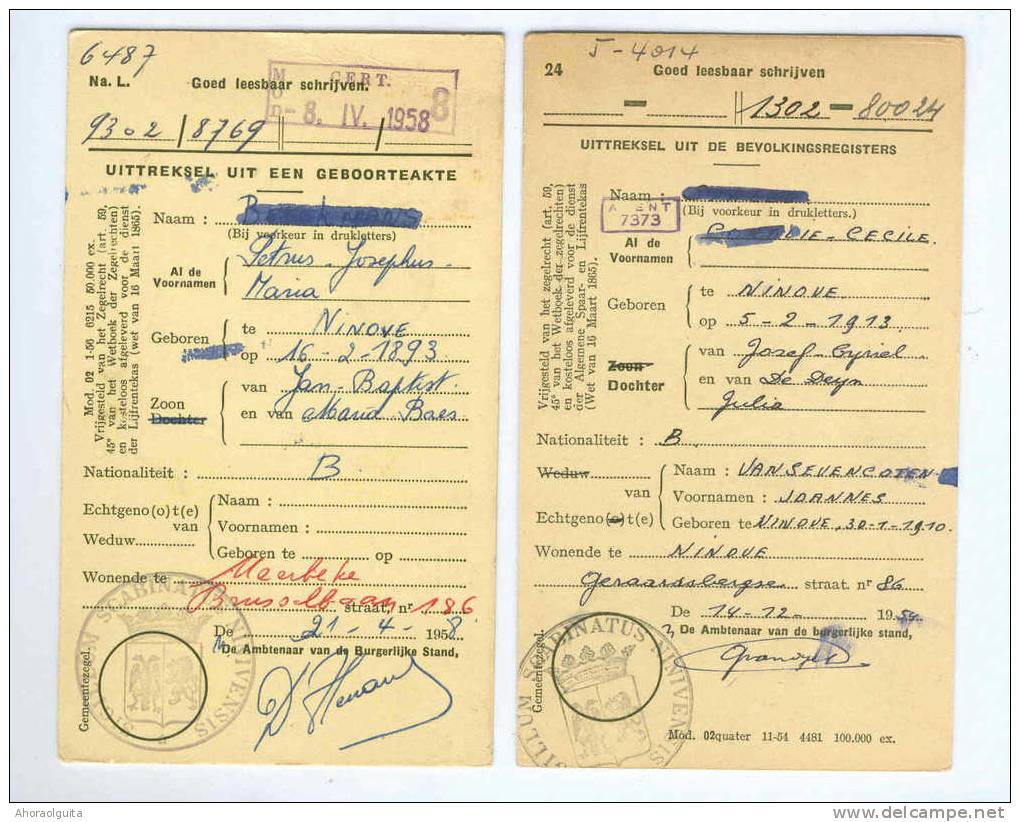 6487
Na. L. Goed leesbaar schrijven.
CERT.
8. IV. 1958 8
9302 / 8769
UITTREKSEL UIT EEN GEBOORTEAKTE
Mod. 02 1-56 6215 50.000 ex.
Vrijgesteld van het Zegelrecht (art. 59,
45° van het Wetboek der Zegelrechten)
en kosteloos afgeleverd voor de dienst
der Lijfrentekas (wet van 16 Maart 1865).
Naam :
(Bij voorkeur in drukletters)
Al de Voornamen
Petrus - Josephus -
Maria
Geboren
te NINOVE
op 16-2-1893.
Zoon
Dochter
van Jan-Baptist.
en van Maria Baes
Nationaliteit : B
Echtgeno(o)t(e)
van
Weduw
Naam :
Voornamen :
Geboren te op
Wonende te Meerbeke
Brusselbaan straat, nr 186
De 21-4-1958.
De Ambtenaar van de Burgerlijke Stand,
Gemeentezegel.
SCABINATUS NINIVENSIS
J-4014
24 Goed leesbaar schrijven
1302 - 80024
UITTREKSEL UIT DE BEVOLKINGSREGISTERS
Vrijgesteld van het zegelrecht (art. 59,
45° van het Wetboek der zegelrechten)
en kosteloos afgeleverd voor de dienst
der Algemene Spaar- en Lijfrentekas
(Wet van 16 Maart 1865).
Naam :
(Bij voorkeur in drukletters.)
7373
Al de Voornamen
CECILE.
Geboren
te NINOVE
op 5-2-1913.
Zoon
Dochter
van Josef-Cyriel
en van De Deyn
Julia
Nationaliteit : B.
Weduw
van
Echtgeno(o)t(e)
Naam : VANSEVENCOTEN
Voornamen : JOANNES
Geboren te NINOVE, 30-1-1910.
Wonende te NINOVE
Geraardsbergse straat. nr 86
De 14-12- 1954.
De Ambtenaar van de burgerlijke stand,
Gemeentezegel.
SIGILLUM SCABINATUS NINIVENSIS
Mod. 02quater 11-54 4481 100.000 ex.
Ahoraolguita
delcampe.net